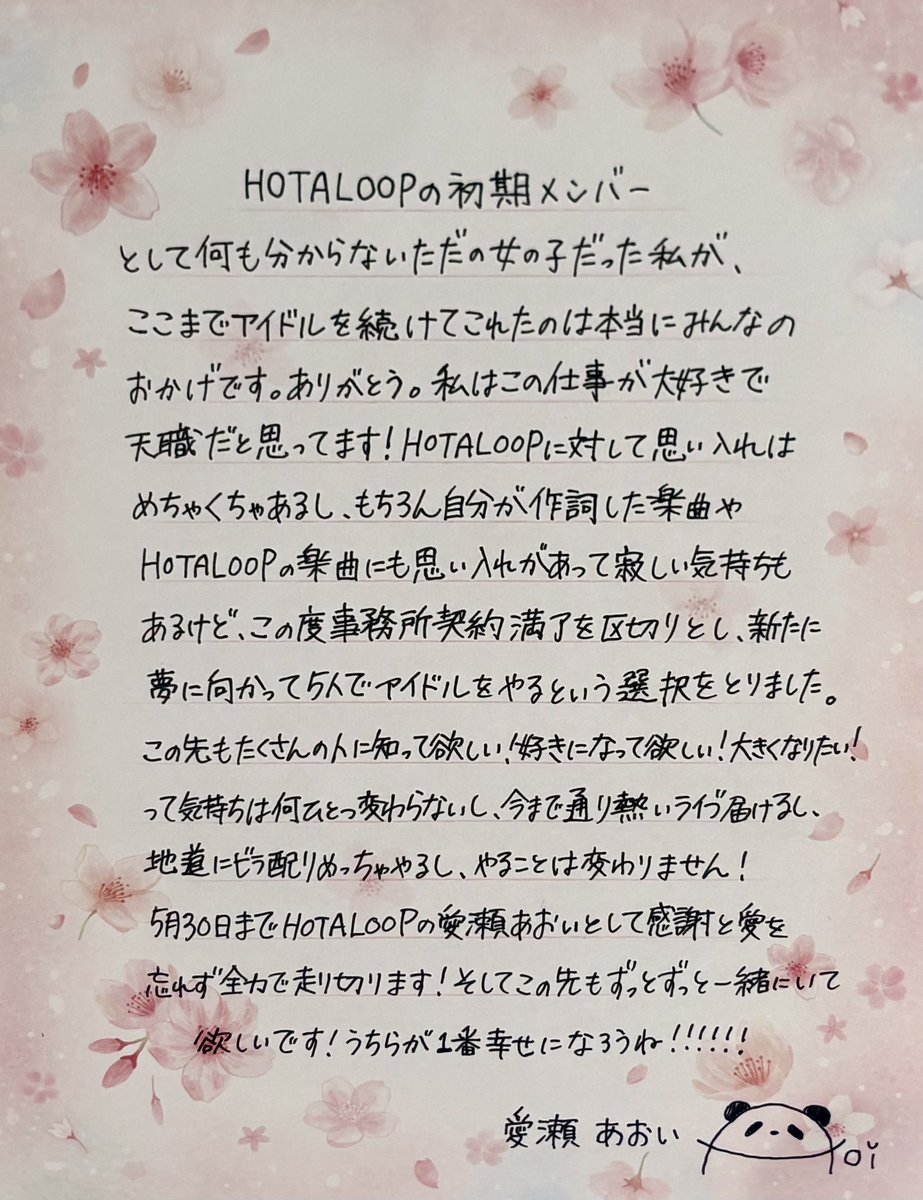 HOTALOOPの初期メンバー
として何も分からないただの女の子だった私が、
ここまでアイドルを続けてこれたのは本当にみんなの
おかげです。ありがとう。私はこの仕事が大好きで
天職だと思ってます!HOTALOOPに対して思い入れは
めちゃくちゃあるし、もちろん自分が作詞した楽曲や
HOTALOOPの楽曲にも思い入れがあって寂しい気持ちも
あるけど、この度事務所契約満了を区切りとし、新たに
夢に向かって5人でアイドルをやるという選択をとりました。
この先もたくさんの人に知って欲しい!好きになって欲しい!大きくなりたい!
って気持ちは何ひとつ変わらないし、今まで通り熱いライブ届けるし、
地道にビラ配りめっちゃやるし、やることは変わりません!
5月30日までHOTALOOPの愛瀬あおいとして感謝と愛を
忘れず全力で走り切ります!そしてこの先もずっとずっと一緒にいて
欲しいです!うちらが1番幸せになろうね!!!!!!
愛瀬 あおい